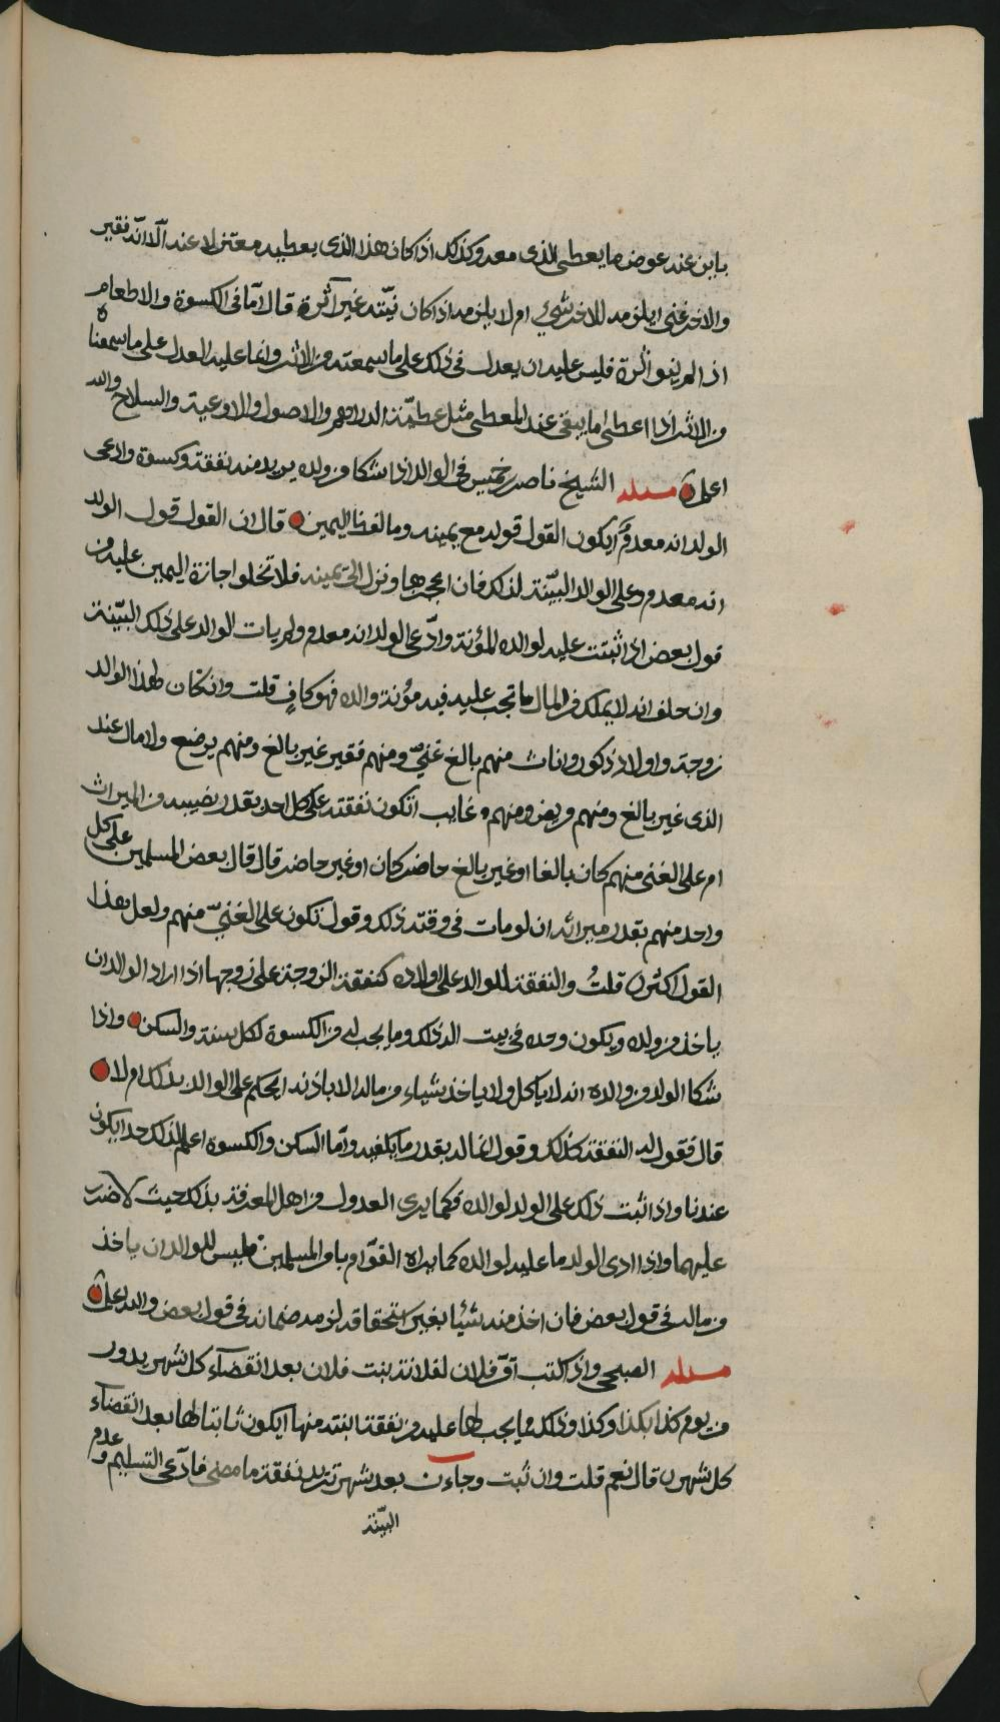 باين عنه عوض ما يعطى الذى معه وكذلك اذا كان هذا الذى يعطيه معتزلا عنه الا انه فقير
والاخر غنى ايلزمه للاخر شئ ام لا يلزمه اذا كان نيته غير اثرة قال اما فى الكسوة والاطعام
اذا لم ينو اثرة فليس عليه ان يعدل فى ذلك على ما سمعته من الاثر وانما عليه العدل على ما سمعنا
من الاثر اذا اعطى ما يبقى عند المعطى مثل عطية الدراهم والاصول والاوعية والسلاح والله
اعلم مسئلة الشيخ ناصر بن خميس فى الوالد اذا شكا من ولده يريد منه نفقة وكسوة وادعى
الولد انه معدم ايكون القول قوله مع يمينه وما لفظ اليمين قال ان القول قول الولد
انه معدم وعلى الوالد البينة لذلك فان اعجزها ونزل الى يمينه فلا تخلوا اجازة اليمين عليه من
قول بعض اذا ثبتت عليه لوالده المؤنة وادعى الولد انه معدم ولم يات الوالد على ذلك البينة
وان حلف انه لا يملك من المال ما تجب عليه فيه مؤنة والده فهو كاف قلت وان كان لهذا الوالد
زوجة واولاد ذكور واناث منهم بالغ غنى ومنهم فقير غير بالغ ومنهم يرضع ولا مال عند
الذى غير بالغ ومنهم مريض ومنهم غايب اتكون نفقته على كل احد بقدر نصيبه من الميراث
ام على الغنى منهم كان بالغا او غير بالغ حاضر كان او غير حاضر قال قال بعض المسلمين على كل
واحد منهم بقدر ميراثه ان لو مات فى وقته ذلك وقول تكون على الغنى منهم ولعل هذا
القول اكثر قلت والنفقة للوالد على اولاده كنفقة الزوجة على زوجها اذا اراد الوالد ان
ياخذ من ولده ويكون وحده فى بيت الد ذلك وما يجب له من الكسوة لكل سنة والسكن واذا
شكا الولد من والده انه لا ياكل ولا ياخذ شياء من ماله الا باذنه ايحكم على الوالد بذلك ام لا
قال فقول له النفقة كذلك وقول انما له بقدر ما يكفيه واما السكن والكسوة اعلم لذلك حدا يكون
عندنا واذا ثبت ذلك على الولد لوالده فكما يرى العدول من اهل المعرفة بذلك حيث لا ضرر
عليهما واذا ادى الولد ما عليه لوالده كما يراه القوام بامر المسلمين فليس للوالد ان ياخذ
من ماله فى قول بعض فان اخذ منه شيئا بغير استحقاقه لزمه ضمانه فى قول بعض والله اعلم
مسئلة الصبحى واذا كتب اقر فلان لفلانة بنت فلان بعد انقضاء كل شهر يدور
من يوم كذا بكذا وكذا وذلك ما يجب لها عليه من نفقة ابنته منها ايكون ثابتا لها بعد انقضاء
كل شهر قال نعم قلت وان ثبت وجاءت بعد شهر تريد نفقة ما مضى فادعى التسليم وعدم
البينة